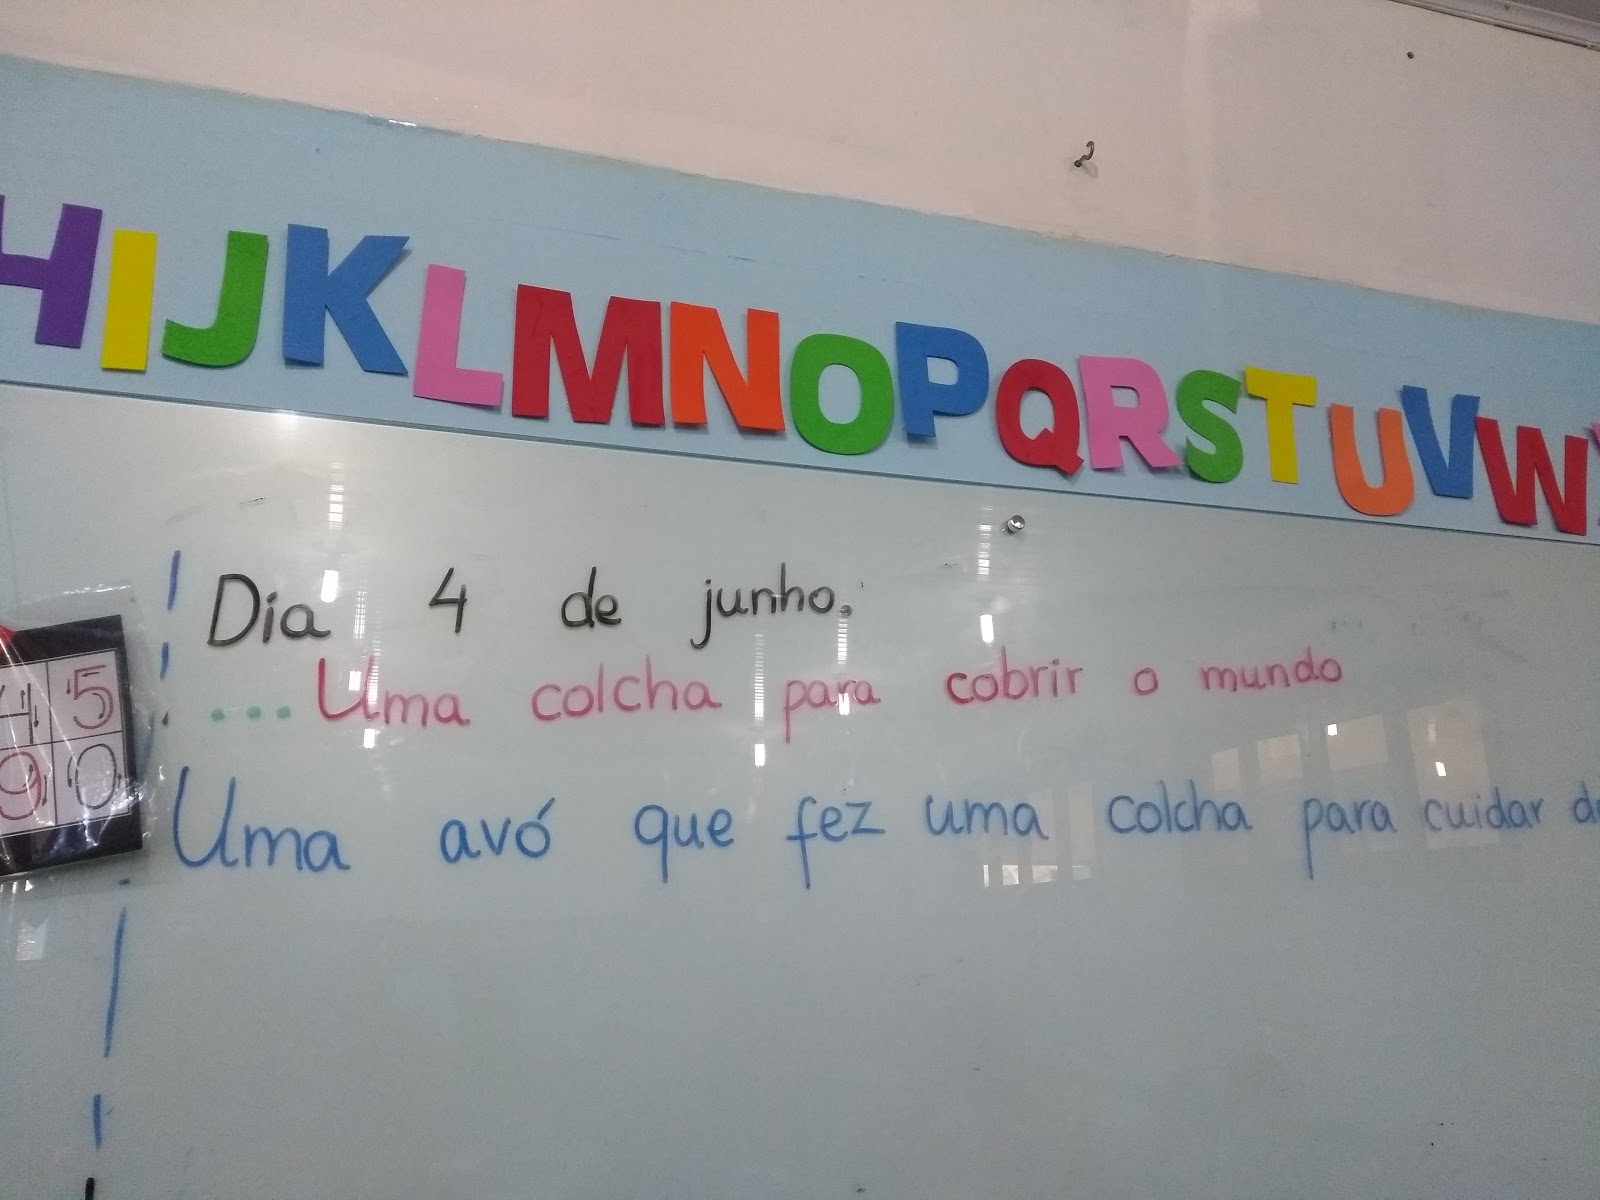 HIJKLMNOPQRSTUVW
Dia 4 de junho.
...Uma colcha para cobrir o mundo
Uma avó que fez uma colcha para cuidar
4 5
9 0